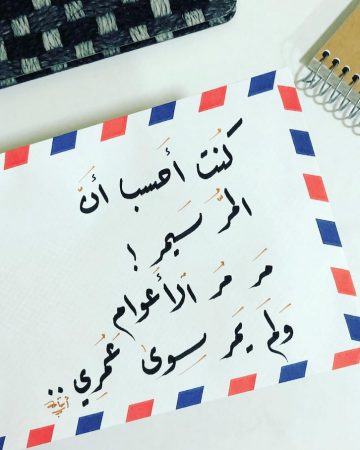 كُنت أحسب أنَّ
المُرَّ سَيمر !
مَر مُر الأعوام
وَلَم يَمَر سِوىٰ عُمُري ..